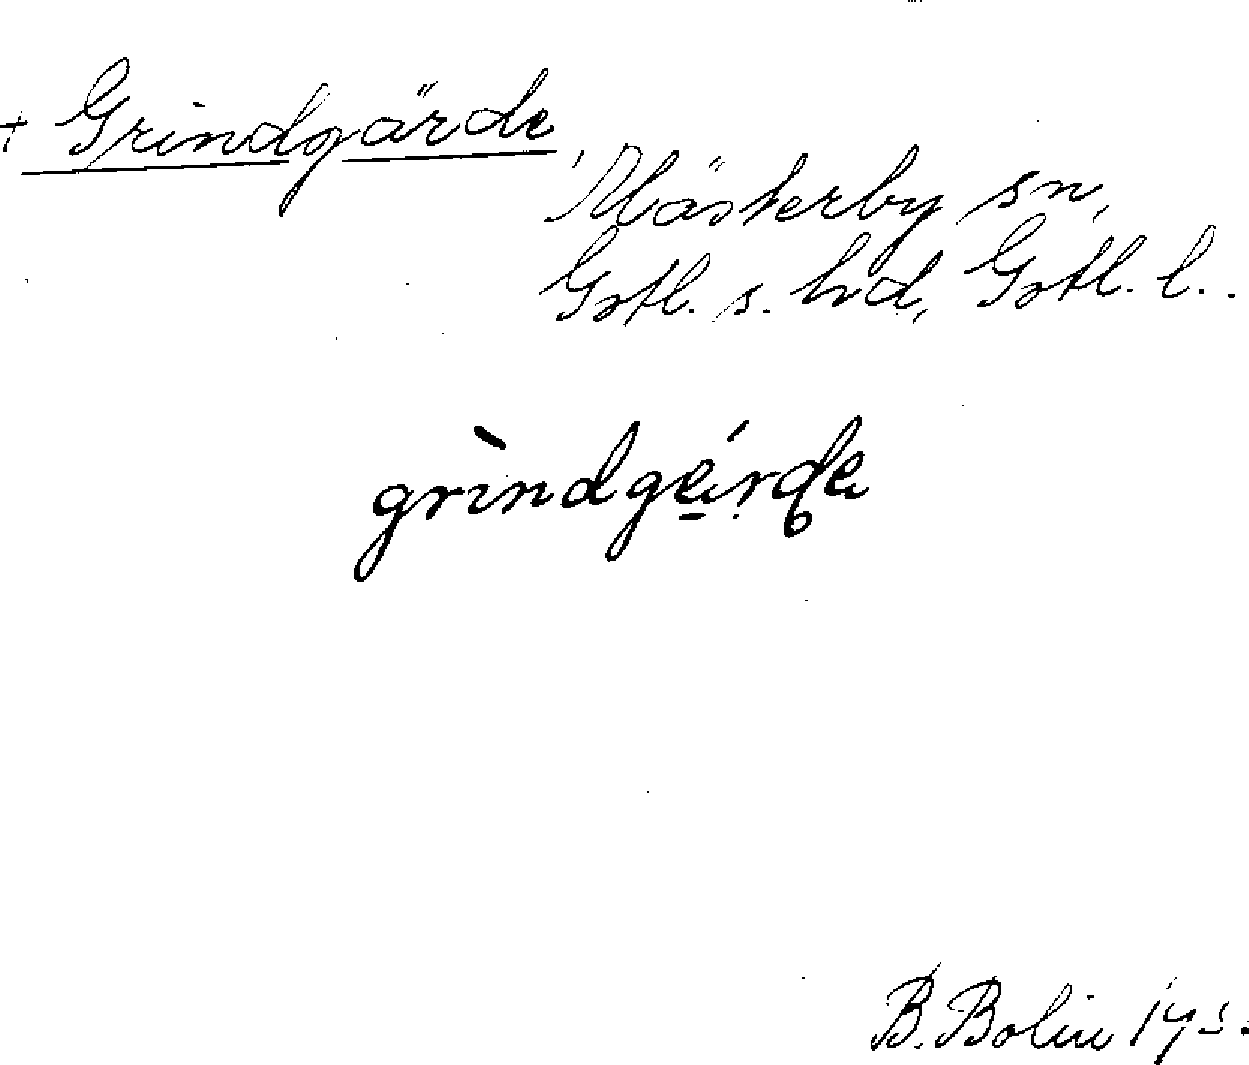 + Grindgärde
Mästerby sn,
Gotl. s. hd, Gotl. l..
grindgärde
B. Bolin